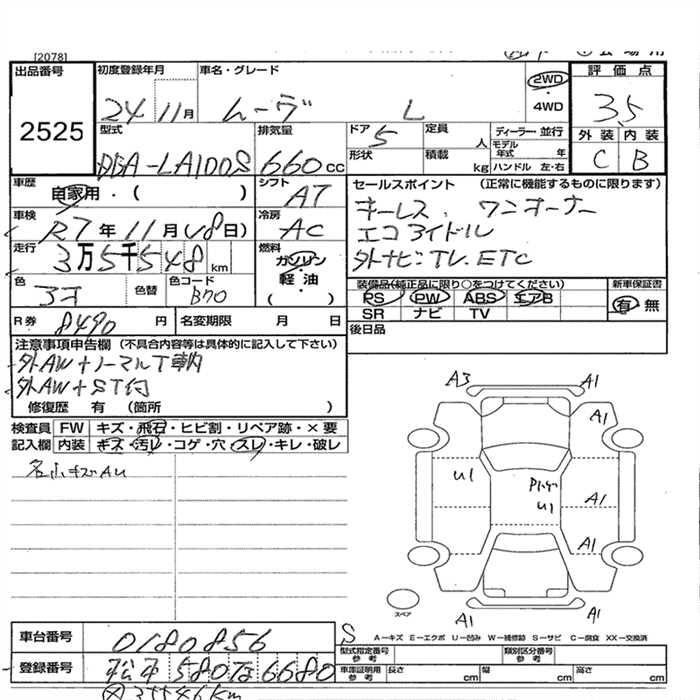 [2078]
出品番号 初度登録年月 車名・グレード 2WD 評価点
2525 24 11月 ムーヴ L ・ 4WD 3.5
型式 排気量 ドア 5 定員 人 ディーラー・並行 外装 内装
DBA-LA100S 660cc 形状 積載 kg モデル年式 年 ハンドル 左・右 C B
車歴 自家用・( ) シフト AT セールスポイント (正常に機能するものに限ります)
車検 R7年11月(18日) 冷房 AC キーレス、ワンオーナー
走行 3万5千548km 燃料 ガソリン エコアイドル
軽油 外ナビ、TV、ETC
色 色替 色コード B70 ( ) 装備品(純正品に限り○をつけてください) 新車保証書
PS PW ABS エアB 有・無
SR ナビ TV
R券 8490円 名変期限 月 日 後日品
注意事項申告欄 (不具合内容等は具体的に記入して下さい)
外AW+ノーマルT車内
外AW+ST付
修復歴 有 (箇所 )
検査員 FW キズ・飛石・ヒビ割・リペア跡・×要
記入欄 内装 キズ・汚レ・コゲ・穴・スレ・キレ・破レ
各小キズAU
A3 A1
A1
U1
U1 A1
A1
A1 A1
スペア
S A－キズ E－エクボ U－凹み W－補修跡 S－サビ C－腐食 XX－交換済
車台番号 0180856 型式指定番号 参考 類別区分番号 参考
登録番号 松本 580 6680 車庫証明用 参考 長さ cm 幅 cm 高さ cm